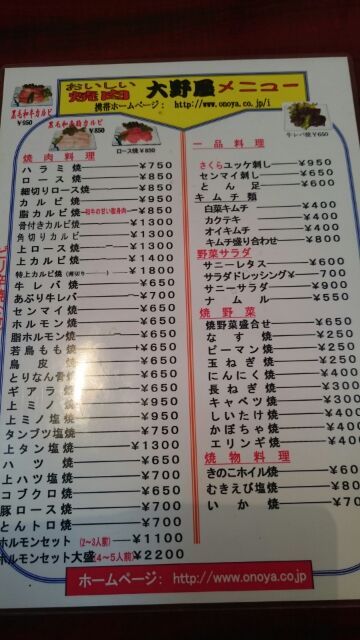 おいしい
焼肉 大野屋メニュー
携帯ホームページ： http://www.onoya.co.jp/i
黒毛和牛カルビ
¥950
¥850
ロース焼 ¥850
牛レバ焼¥650
焼肉料理
ハラミ焼 ¥750
ロース焼 ¥850
細切りロース焼 ¥850
カルビ焼 ¥950
脂カルビ焼 ¥850
骨付きカルビ ¥1300
角切りカルビ ¥1300
上ロース焼 ¥1300
上カルビ焼 ¥1400
特上カルビ焼 ¥1800
牛レバ焼 ¥650
あぶり牛レバ ¥700
センマイ焼 ¥650
ホルモン焼 ¥650
脂ホルモン焼 ¥650
若鳥もも焼 ¥650
鳥皮焼 ¥650
とりなん骨焼 ¥650
ギアラ焼 ¥650
上ミノ焼 ¥950
上ミノ塩焼 ¥950
タンブツ塩焼 ¥750
上タン塩焼 ¥1300
ハツ焼 ¥650
上ハツ塩焼 ¥700
コブクロ焼 ¥650
豚ロース焼 ¥700
とんトロ焼 ¥700
ホルモンセット (2〜3人前) ¥1100
ホルモンセット大盛(4〜5人前) ¥2200
一品料理
さくらユッケ刺し ¥950
センマイ刺し ¥650
とん足 ¥600
キムチ類
白菜キムチ ¥400
カクテキ ¥400
オイキムチ ¥400
キムチ盛り合わせ ¥800
野菜サラダ
サニーレタス ¥600
サラダドレッシング ¥700
サニーサラダ ¥900
ナムル ¥550
焼野菜
焼野菜盛合せ ¥650
なす焼 ¥250
ピーマン焼 ¥250
玉ねぎ焼 ¥250
にんにく焼 ¥400
長ねぎ焼 ¥300
キャベツ焼 ¥300
しいたけ焼 ¥400
かぼちゃ焼 ¥400
エリンギ焼 ¥400
焼物料理
きのこホイル焼
むきえび塩焼
いか焼
ホームページ： http://www.onoya.co.jp